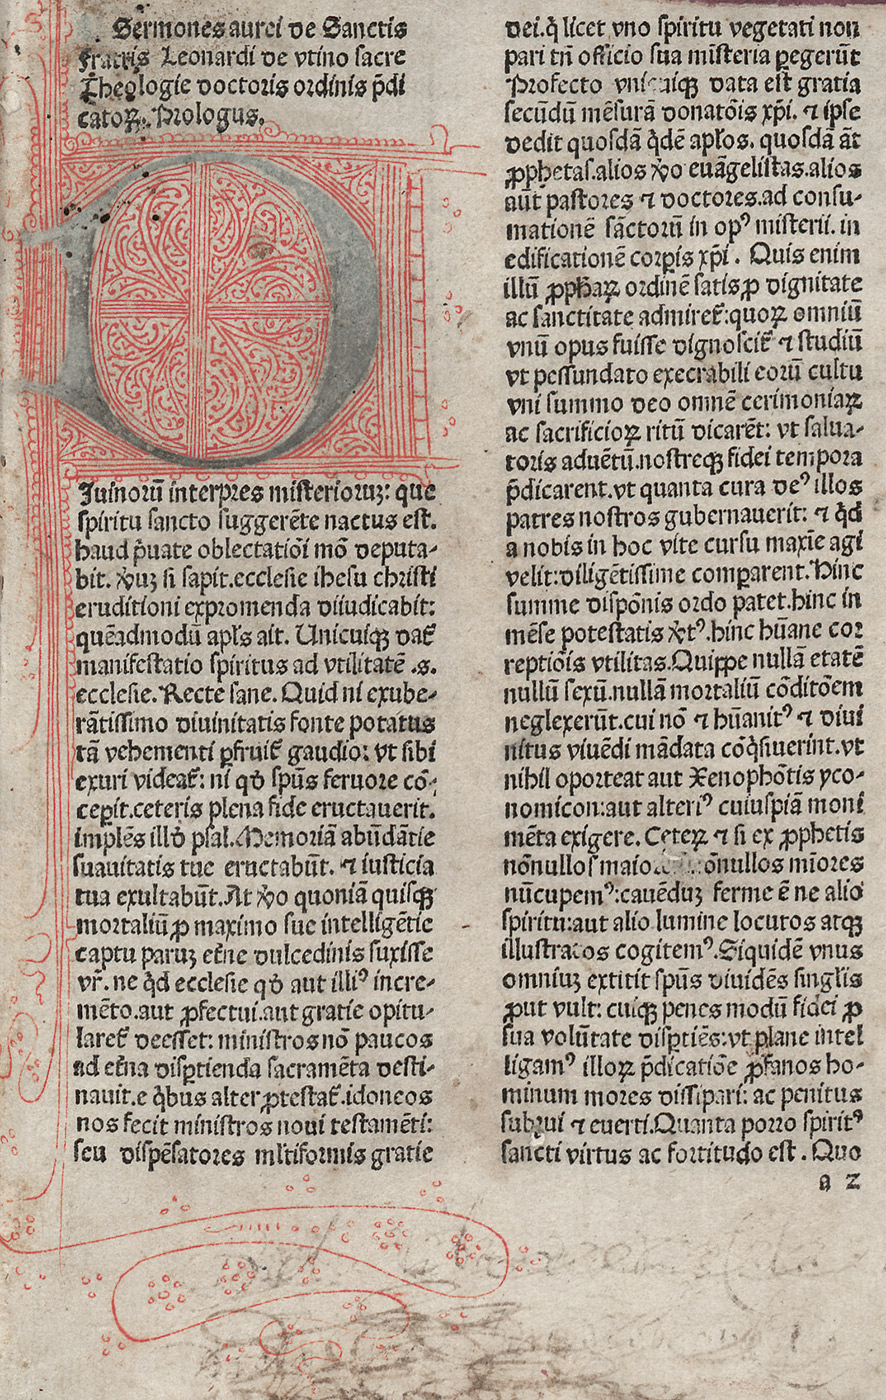 Sermones aurei de Sanctis
fratris Leonardi de vtino sacre
Theologie doctoris ordinis p̄di
catoꝝ. Prologus.
Diuinorū interpres misterioruꝫ: que
spiritu sancto suggerēte nactus est.
haud p̄uate oblectatiōi mō deputa-
bit. v̊uꝫ si sapit. ecclesie ihesu christi
eruditioni expromenda diiudicabit:
quēadmodū apl̄s ait. Unicuiqꝫ dat᷑
manifestatio spiritus ad vtilitatē .s.
ecclesie. Recte sane. Quid ni exube-
rātissimo diuinitatis fonte potatus
tā vehementi ꝑfruit᷑ gaudio: vt sibi
exuri videat᷑: ni qd̓ spūs feruore cō-
ceperit. ceteris plena fide eructauerit.
implēs illd̓ psal. Memoriā abūdātie
suauitatis tue eructabūt. ⁊ iusticia
tua exultabūt. At v̊o quoniā quisqꝫ
mortaliū ꝓ maximo sue intelligētie
captu paruꝫ et̓ne dulcedinis suxisse
vr̄. ne q̇d ecclesie qd̓ aut illiꝰ incre-
mēto. aut ꝓfectui. aut gratie opitu-
laret᷑ deesset: ministros nō paucos
ad et̓na disꝑtienda sacramēta desti-
nauit. e q̇bus alter ꝓtestat᷑. idoneos
nos fecit ministros noui testamēti:
seu dispēsatores ml̄tiformis gratie
dei. q̇ licet vno spiritu vegetati non
pari tn̄ officio sua mīsteria ꝑegerūt
Profecto vnicuiqꝫ data est gratia
secūdū mēsurā donatōis xp̄i. ⁊ ipse
dedit quosdā q̇dē apl̄os. quosdā āt
ꝓphetas. alios v̊o euāgelistas. alios
aūt pastores ⁊ doctores. ad consu-
mationē sāctorū in opꝰ misterii. in
edificationē corꝑis xp̄i. Quis enim
illū ꝓpħaꝝ ordinē satis ꝓ dignitate
ac sanctitate admiret᷑: quoꝝ omniū
vnū opus fuisse dignoscit᷑ ⁊ studiū
vt pessundato execrabili eorū cultu
vni summo deo omnē cerimoniaꝝ
ac sacrificioꝝ ritū dicarēt: vt salua-
toris aduētū. nostreqꝫ fidei tempora
p̄dicarent. vt quanta cura deꝰ illos
patres nostros gubernauerit: ⁊ q̇d
a nobis in hoc vite cursu maxīe agi
velit: diligētissime comꝑarent. Hinc
summe dispōnis ordo patet. hinc in
mēse potestatis v̓tꝰ. hinc hūane cor
reptiōis vtilitas. Quippe nullā etatē
nullū sexū. nullā mortaliū cōditōem
neglexerūt. cui nō ⁊ hūanitꝰ ⁊ diui
nitus viuēdi mādata cōq̇siuerint. vt
nihil oporteat aut Xenophōtis yco-
nomicon: aut alteriꝰ cuiuspiā moni
mēta exigere. Ceteꝝ ⁊ si ex ꝓphetis
nōnullos ōnullos mīores
nūcupemꝰ: cauēduꝫ ferme ē ne alio
spiritu: aut alio lumine locutos atqꝫ
illustratos cogitemꝰ. Siquidē vnus
omniuꝫ extitit spūs diuidēs singl̓is
ꝓut vult: cuiqꝫ penes modū fidei ꝓ
sua volūtate disꝑtiēs: vt plane intel
ligamꝰ illoꝝ p̄dicatiōe ꝓfanos ho-
minum mores dissipari: ac penitus
subrui ⁊ euerti. Quanta porro spiritꝰ
sancti virtus ac fortitudo est. Quo
a 2